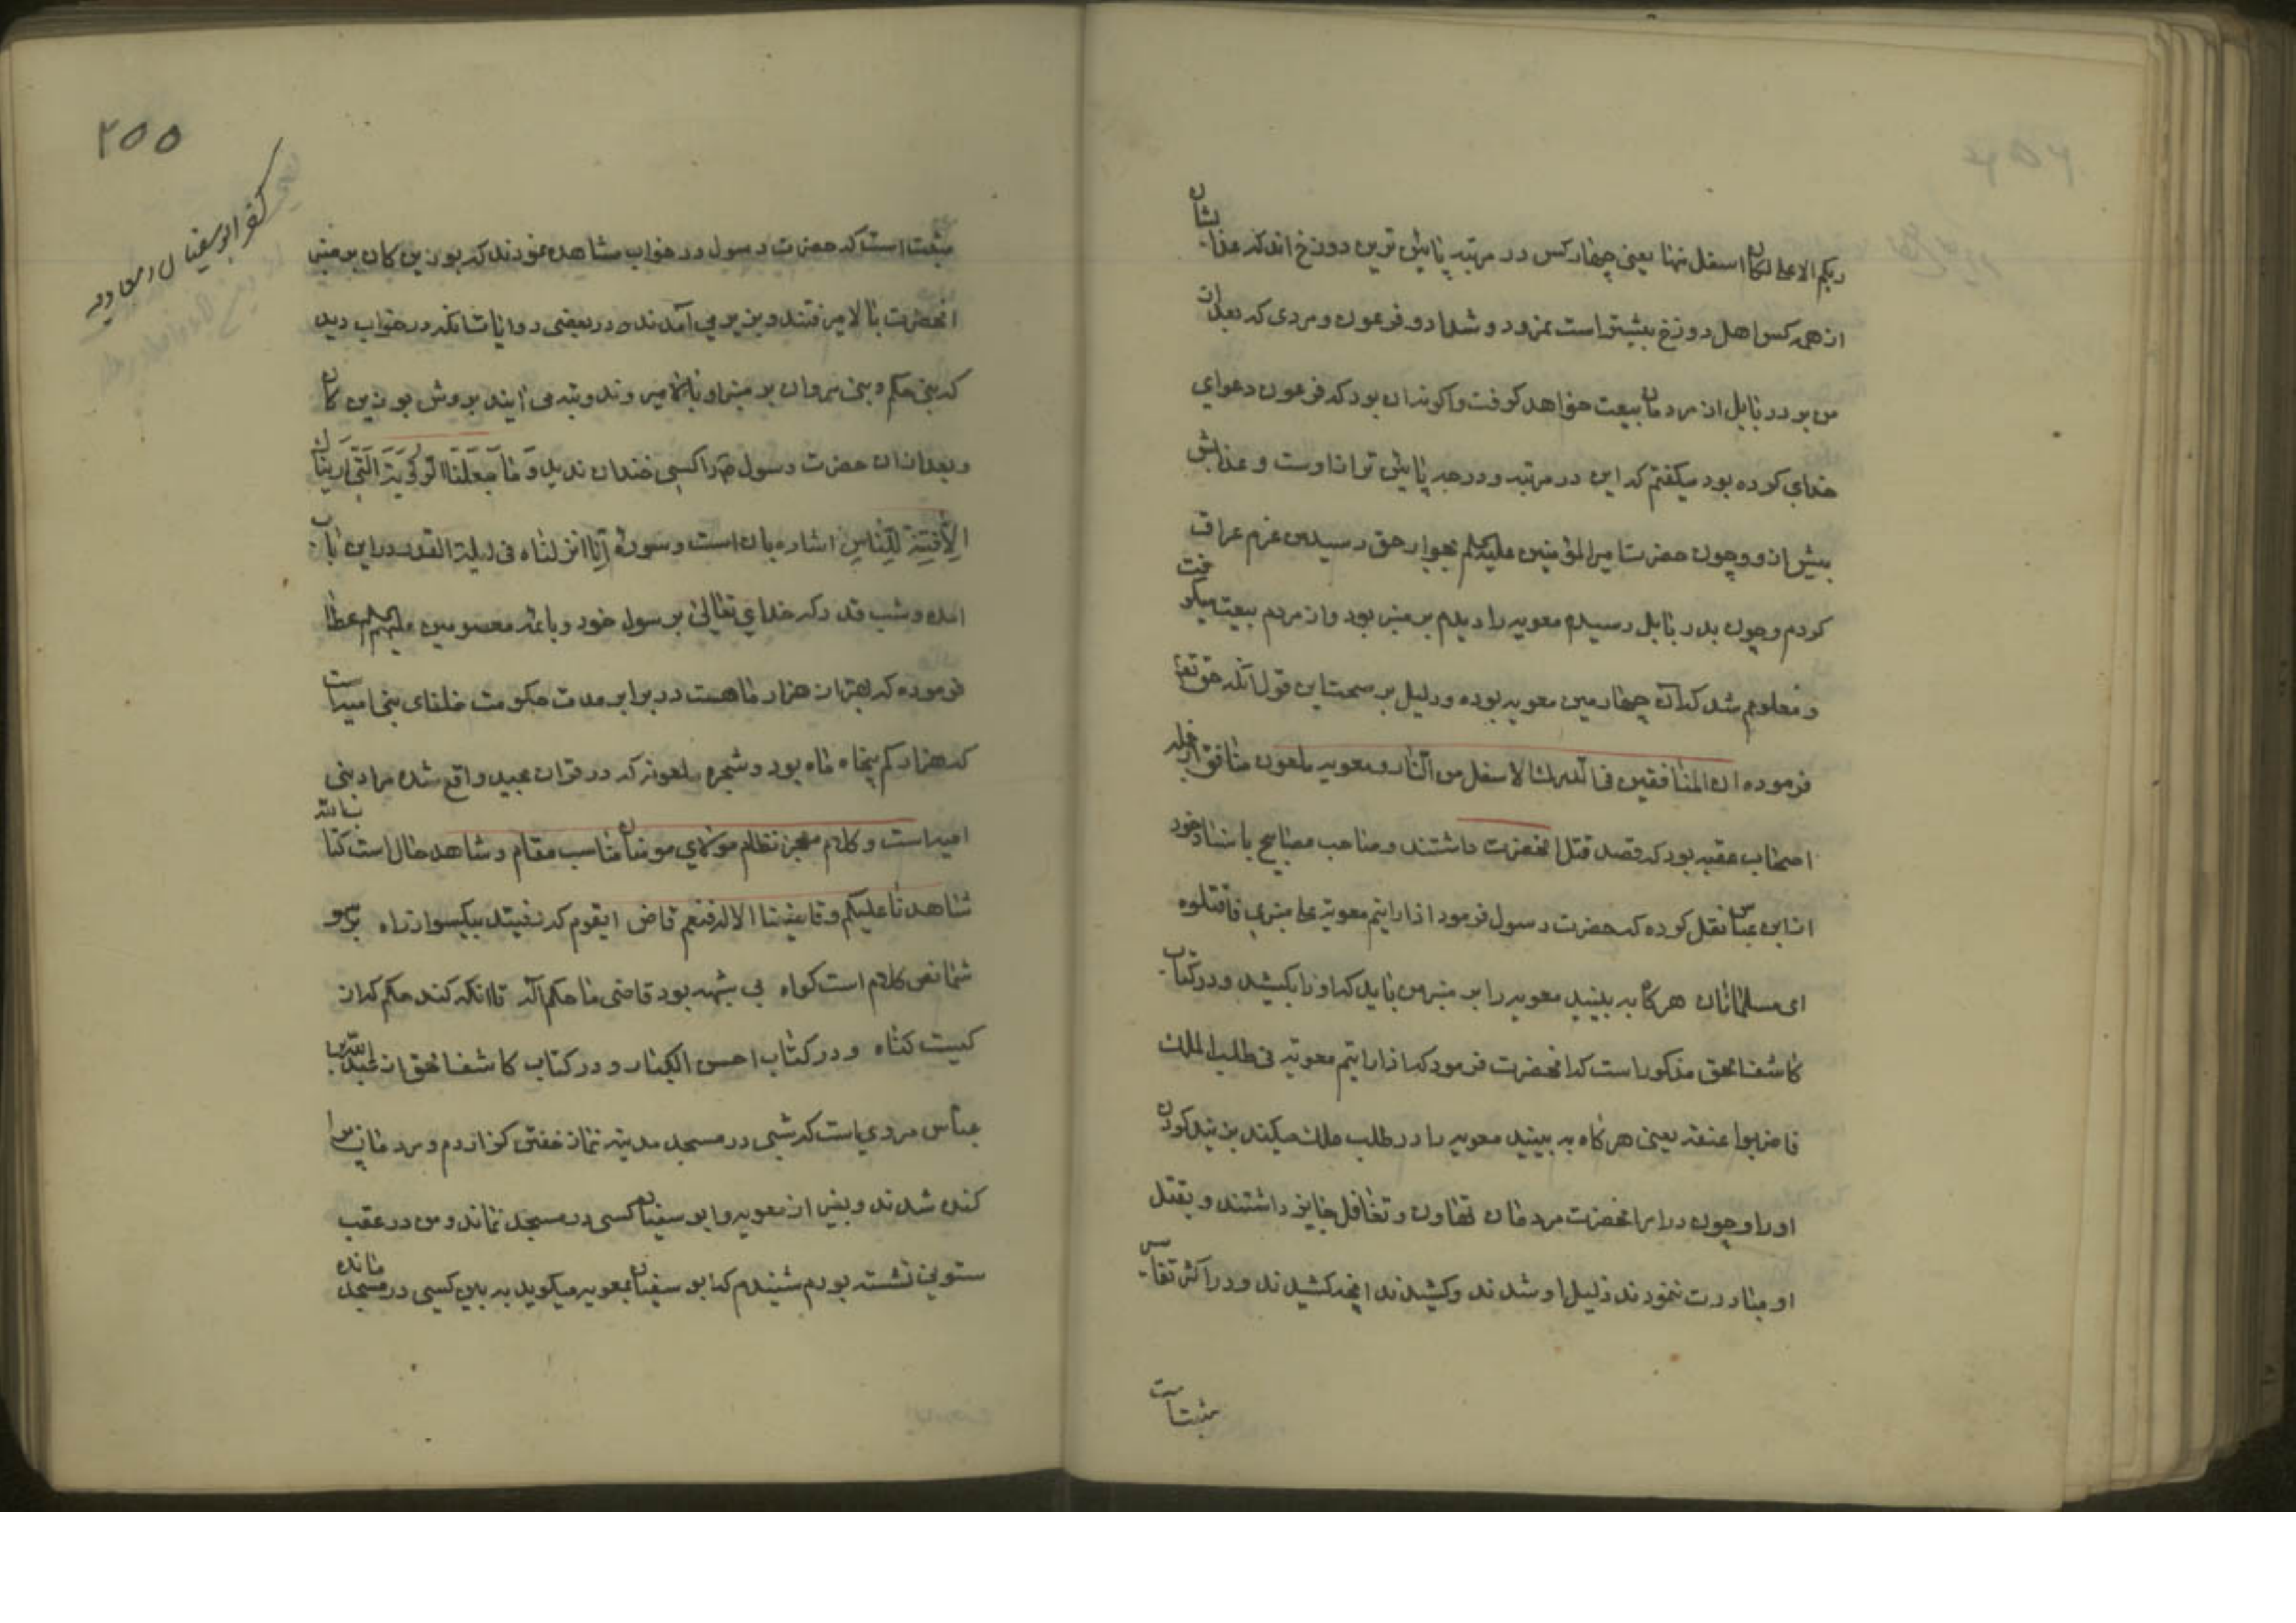 ربکم الاعلی لکان اسفل منها یعنی چهار کس در مرتبه پائین ترین دوزخ اند که عذابشان
از همه کس اهل دوزخ بیشتر است نمرود و شداد و فرعون و مردی که بعد از
من بر در بابل از مردمان بیعت خواهد کرفت و اکر نه آن بود که فرعون دعوای
خدای کرده بود میکفتم که این در مرتبه و درجه پائین تر از اوست و عذابش
بیش از او و چون حضرت امیر المؤمنین علیه السلم بجوار حق رسید من عزم عراق
کردم و چون بدر بابل رسیدم معویه را دیدم بر منبر بود و از مردم بیعت میکرفت
و معلوم شد که آن چهارمین معویه بوده و دلیل بر صحت این قول آنکه حق تعا
فرموده ان المنافقین فی الدرک الاسفل من النار و معویه ملعون منافق از جمله
اصحاب عقبه بود که قصد قتل انحضرت داشتند و صاحب مصابیح باسناد خود
از ابن عباس نقل کرده که حضرت رسول فرمود اذا رایتم معویة علی منبری فاقتلوه
ای مسلمانان هرکاه به بینید معویه را بر منبر من باید که او را بکشید و در کتاب
کاشف الحق مذکور است که انحضرت فرمود که اذا رایتم معویة فی طلب الملک
فاضربوا عنقه یعنی هرکاه به بینید معویه را در طلب ملک میکند بزنید کردن
او را و چون در امر انحضرت مردمان تهاون و تغافل جایز داشتند و بقتل
او مبادرت ننمودند ذلیل او شدند و کشیدند انچه کشیدند و در اکثر تفاسیر
مثبت است
۲۵۵
کفر ابوسفیان و معاویه
مثبت است که حضرت رسول در خواب مشاهده نمودند که بوزینه کان بر منبر
انحضرت بالا میرفتند و بزیر می آمدند و در بعضی روایات انکه در خواب دید
که بنی حکم و بنی مروان بر منبر او بالا میروند و بزیر می ایند بروش بوزینه کان
و بعد از ان حضرت رسول ص را کسی خندان ندید و ما جعلنا الرؤیا التی اریناک
الا فتنة للناس اشاره بان است و سوره انا انزلناه فی لیلة القدر در این باب
امده و شب قدر که خدای تعالی برسول خود و بائمه معصومین علیهم السلم عطا
فرموده که بهتر از هزار ماهست در برابر مدت حکومت خلفای بنی امیه است
که هزار کم پنجاه ماه بود و شجره ملعونه که در قران مجید واقع شده مراد بنی
امیه است و کلام معجز نظام مولای مومنان مناسب مقام و شاهد حال است کتاب الله
شاهدنا علیکم و قاضینا الاله فنعم قاض ایقوم که رفتید بیکسو از راه بر سر
شما نص کلام است کواه بی شبهه بود قاضی ما حکم آله تا انکه کند حکم که از
کیست کناه و در کتاب احسن الکبار و در کتاب کاشف الحق از عبد الله بن
عباس مروی است که شبی در مسجد مدینه نماز خفتن کزاردم و مردمان پرا
کنده شدند و بغیر از معویه و ابو سفیان کسی در مسجد نماند و من در عقب
ستونی نشسته بودم شنیدم که ابو سفیان بمعویه میکوید به بین کسی در مسجد مانده